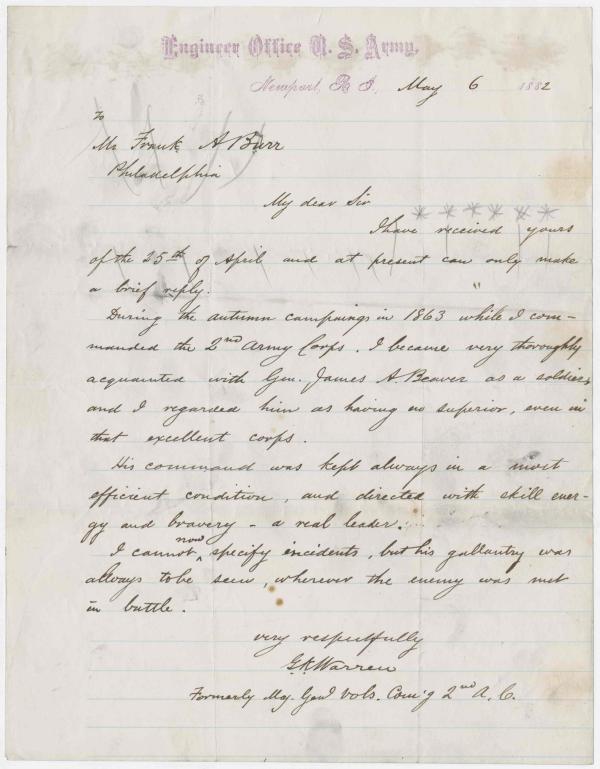 Engineer Office U. S. Army,
Newport, R I., May 6 1882
To
Mr Frank A Burr
Philadelphia
My dear Sir
I have received yours
of the 25th of April and at present can only make
a brief reply.
During the autumn campaings in 1863 while I com-
manded the 2nd Army Corps. I became very thoroughly
acquainted with Gen. James A. Beaver as a soldier,
and I regarded him as having no superior, even in
that excellent corps.
His command was kept always in a most
efficient condition, and directed with skill ener-
gy and bravery - a real leader.
I cannot now specify incidents, but his gallantry was
always to be seen, wherever the enemy was met
in battle.
very respectfully
G.K. Warren
Formerly Maj. Genl Vols. Com'g 2nd A. C.